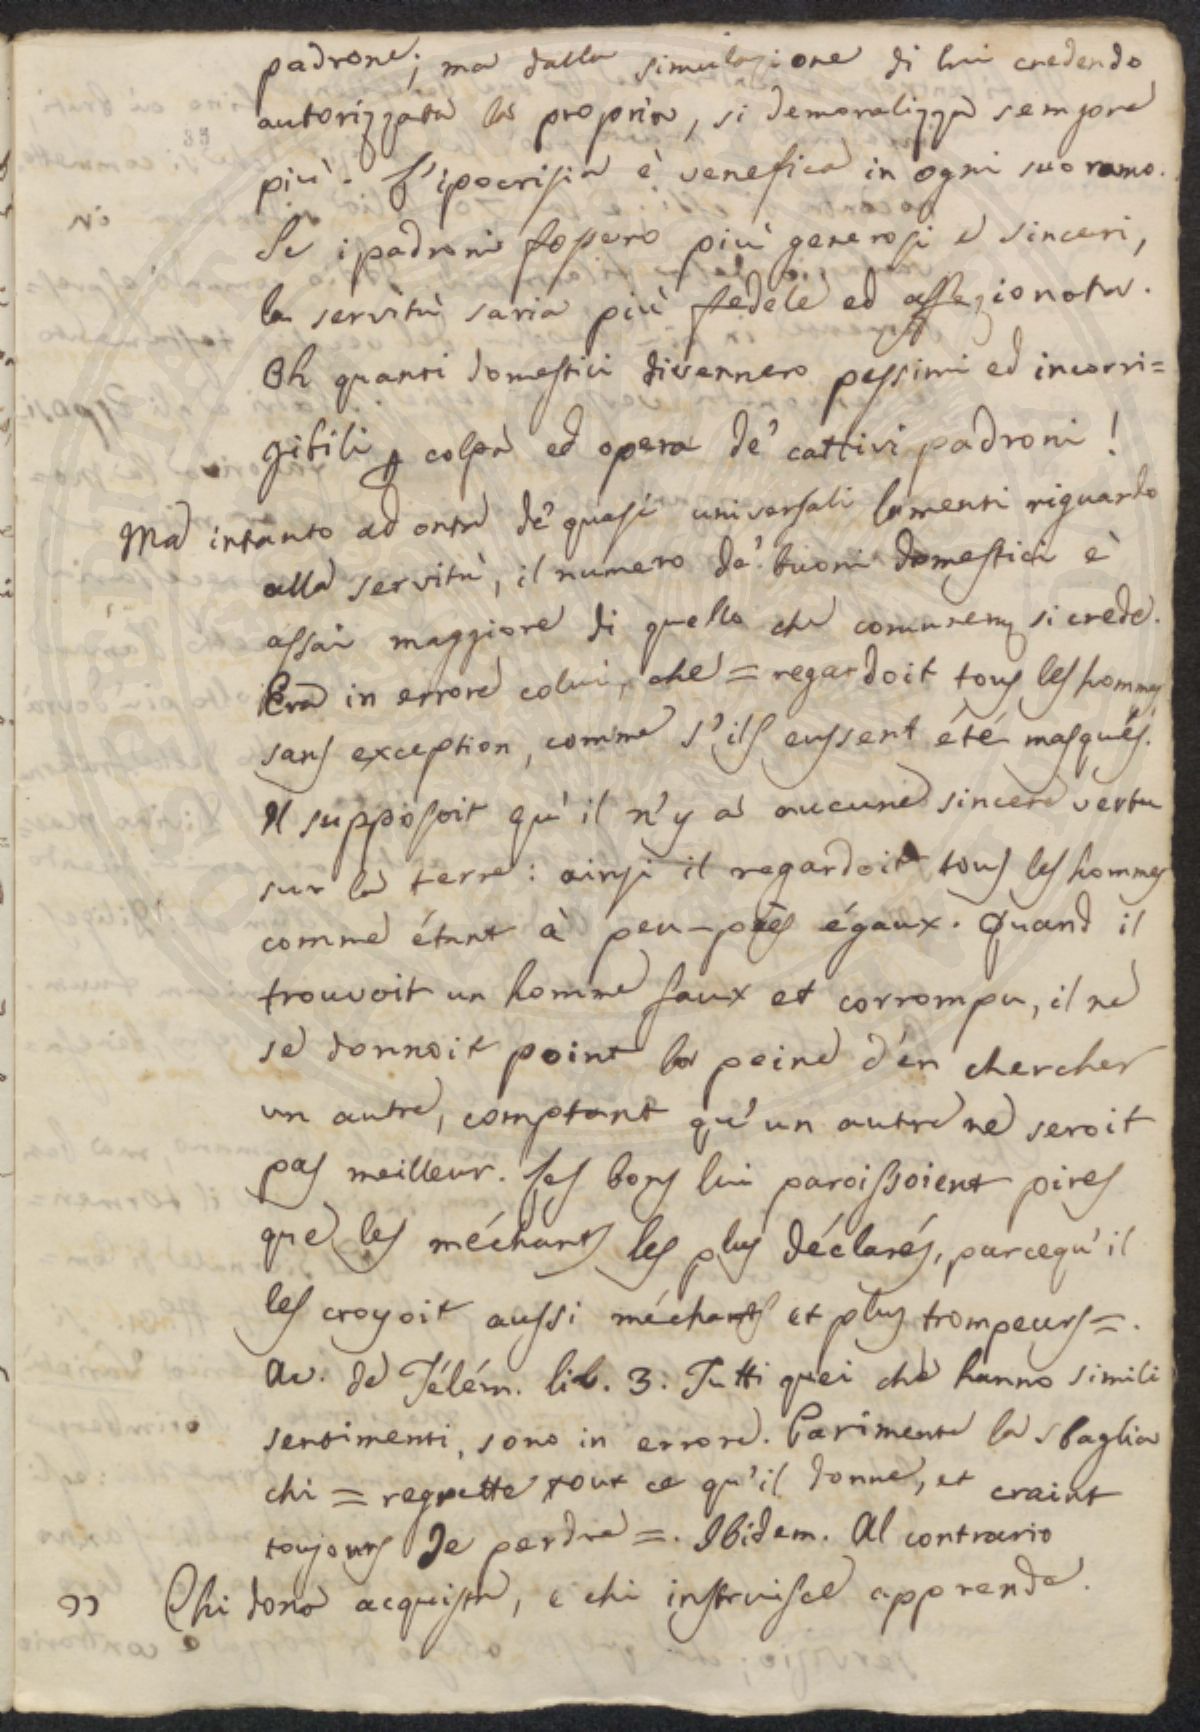 padrone; ma dalla simulazione di lui credendo
autorizzata la propria, si demoralizza sempre
più. L'ipocrisia è venefica in ogni suo ramo.
Se i padroni fossero più generosi e sinceri,
la servitù saria più fedele ed affezionata.
Oh quanti domestici divennero pessimi ed incorri=
gibili p colpa ed opera de' cattivi padroni!
Ma intanto ad onta de' quasi universali lamenti riguardo
alla servitù, il numero de' buoni domestici è
assai maggiore di quello che comunem si crede.
Era in errore colui, che = regardoit tous les hommes
sans exception, comme s'ils eussent été masqués.
Il supposoit qu'il n'y a aucune sincere vertu
sur la terre: ainsi il regardoit tous les hommes
comme étant à peu-près égaux. Quand il
trouvoit un homme faux et corrompu, il ne
se donnoit point la peine d'en chercher
un autre, comptant qu'un autre ne seroit
pas meilleur. Les bons lui paroissoient pires
que les méchants les plus déclarés, parcequ'il
les croyoit aussi méchants et plus trompeurs =.
Av. de Télém. lib. 3. Tutti quei che hanno simili
sentimenti, sono in errore. Parimente la sbaglia
chi = regrette tout ce qu'il donne, et craint
toujours de perdre =. Ibidem. Al contrario
" Chi dona acquista, e chi instruisce apprende.